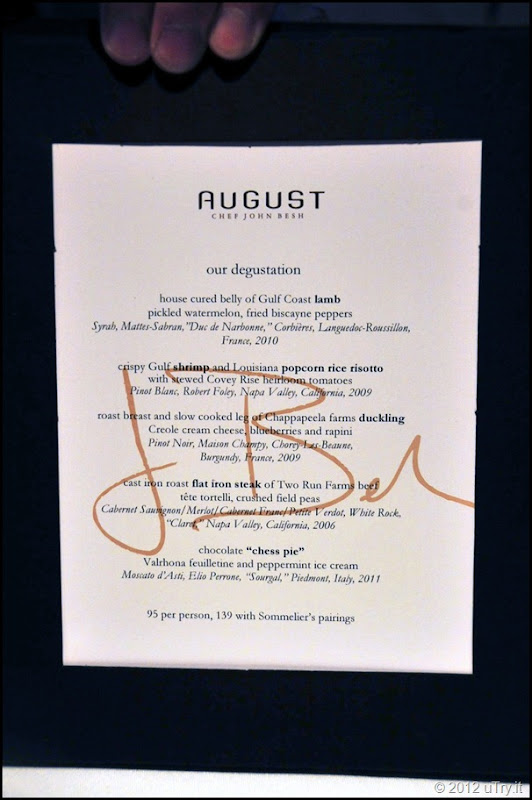 AUGUST
CHEF JOHN BESH
our degustation
house cured belly of Gulf Coast lamb
pickled watermelon, fried biscayne peppers
Syrah, Mattes-Sabran,"Duc de Narbonne," Corbières, Languedoc-Roussillon,
France, 2010
crispy Gulf shrimp and Louisiana popcorn rice risotto
with stewed Covey Rise heirloom tomatoes
Pinot Blanc, Robert Foley, Napa Valley, California, 2009
roast breast and slow cooked leg of Chappapeela farms duckling
Creole cream cheese, blueberries and rapini
Pinot Noir, Maison Champy, Chorey-Les-Beaune,
Burgundy, France, 2009
cast iron roast flat iron steak of Two Run Farms beef
tête tortelli, crushed field peas
Cabernet Sauvignon/Merlot/Cabernet Franc/Petite Verdot, White Rock,
"Claret," Napa Valley, California, 2006
J Besh
chocolate "chess pie"
Valrhona feuilletine and peppermint ice cream
Moscato d'Asti, Elio Perrone, "Sourgal," Piedmont, Italy, 2011
95 per person, 139 with Sommelier's pairings
© 2012 uTry.it